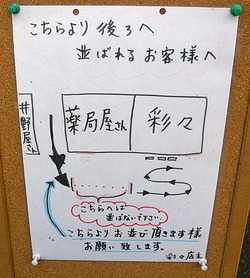 こちらより後ろへ
並ばれるお客様へ
井野屋さん
薬局屋さん
彩々
こちらへは
並ばないで下さい。
こちらよりお並び頂きます様
お願い致します。
彩々店主